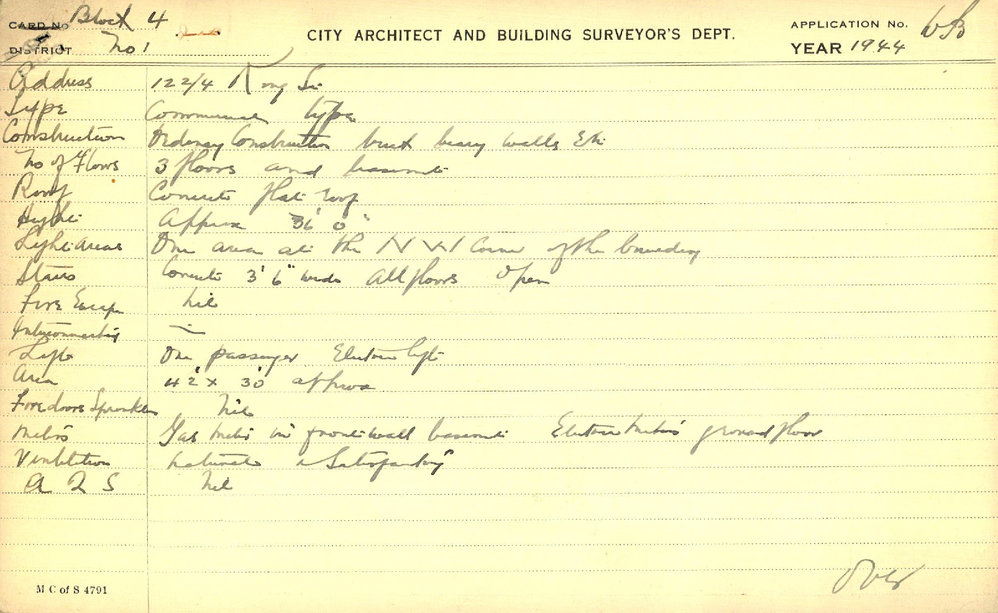 CARD No Block 4
DISTRICT No 1
CITY ARCHITECT AND BUILDING SURVEYOR'S DEPT.
APPLICATION No. WB
YEAR 1944
Address 122/4 King St
Type Commercial type
Construction Ordinary Construction brick bearing walls Etc
No of Floors 3 floors and basement
Roof Concrete flat roof
Height Approx 36' 0"
Light Areas One area at the N W Corner of the building
Stairs Concrete 3' 6" wide All floors Open
Fire Escape Nil
Interconnecting —
Lifts One passenger Electric lift
Area 42' x 30' approx
Fire doors Sprinklers Nil
Meters Gas meter in front wall basement Electric meters ground floor
Ventilation Natural & Satisfactory
Nil
Over
M C of S 4791